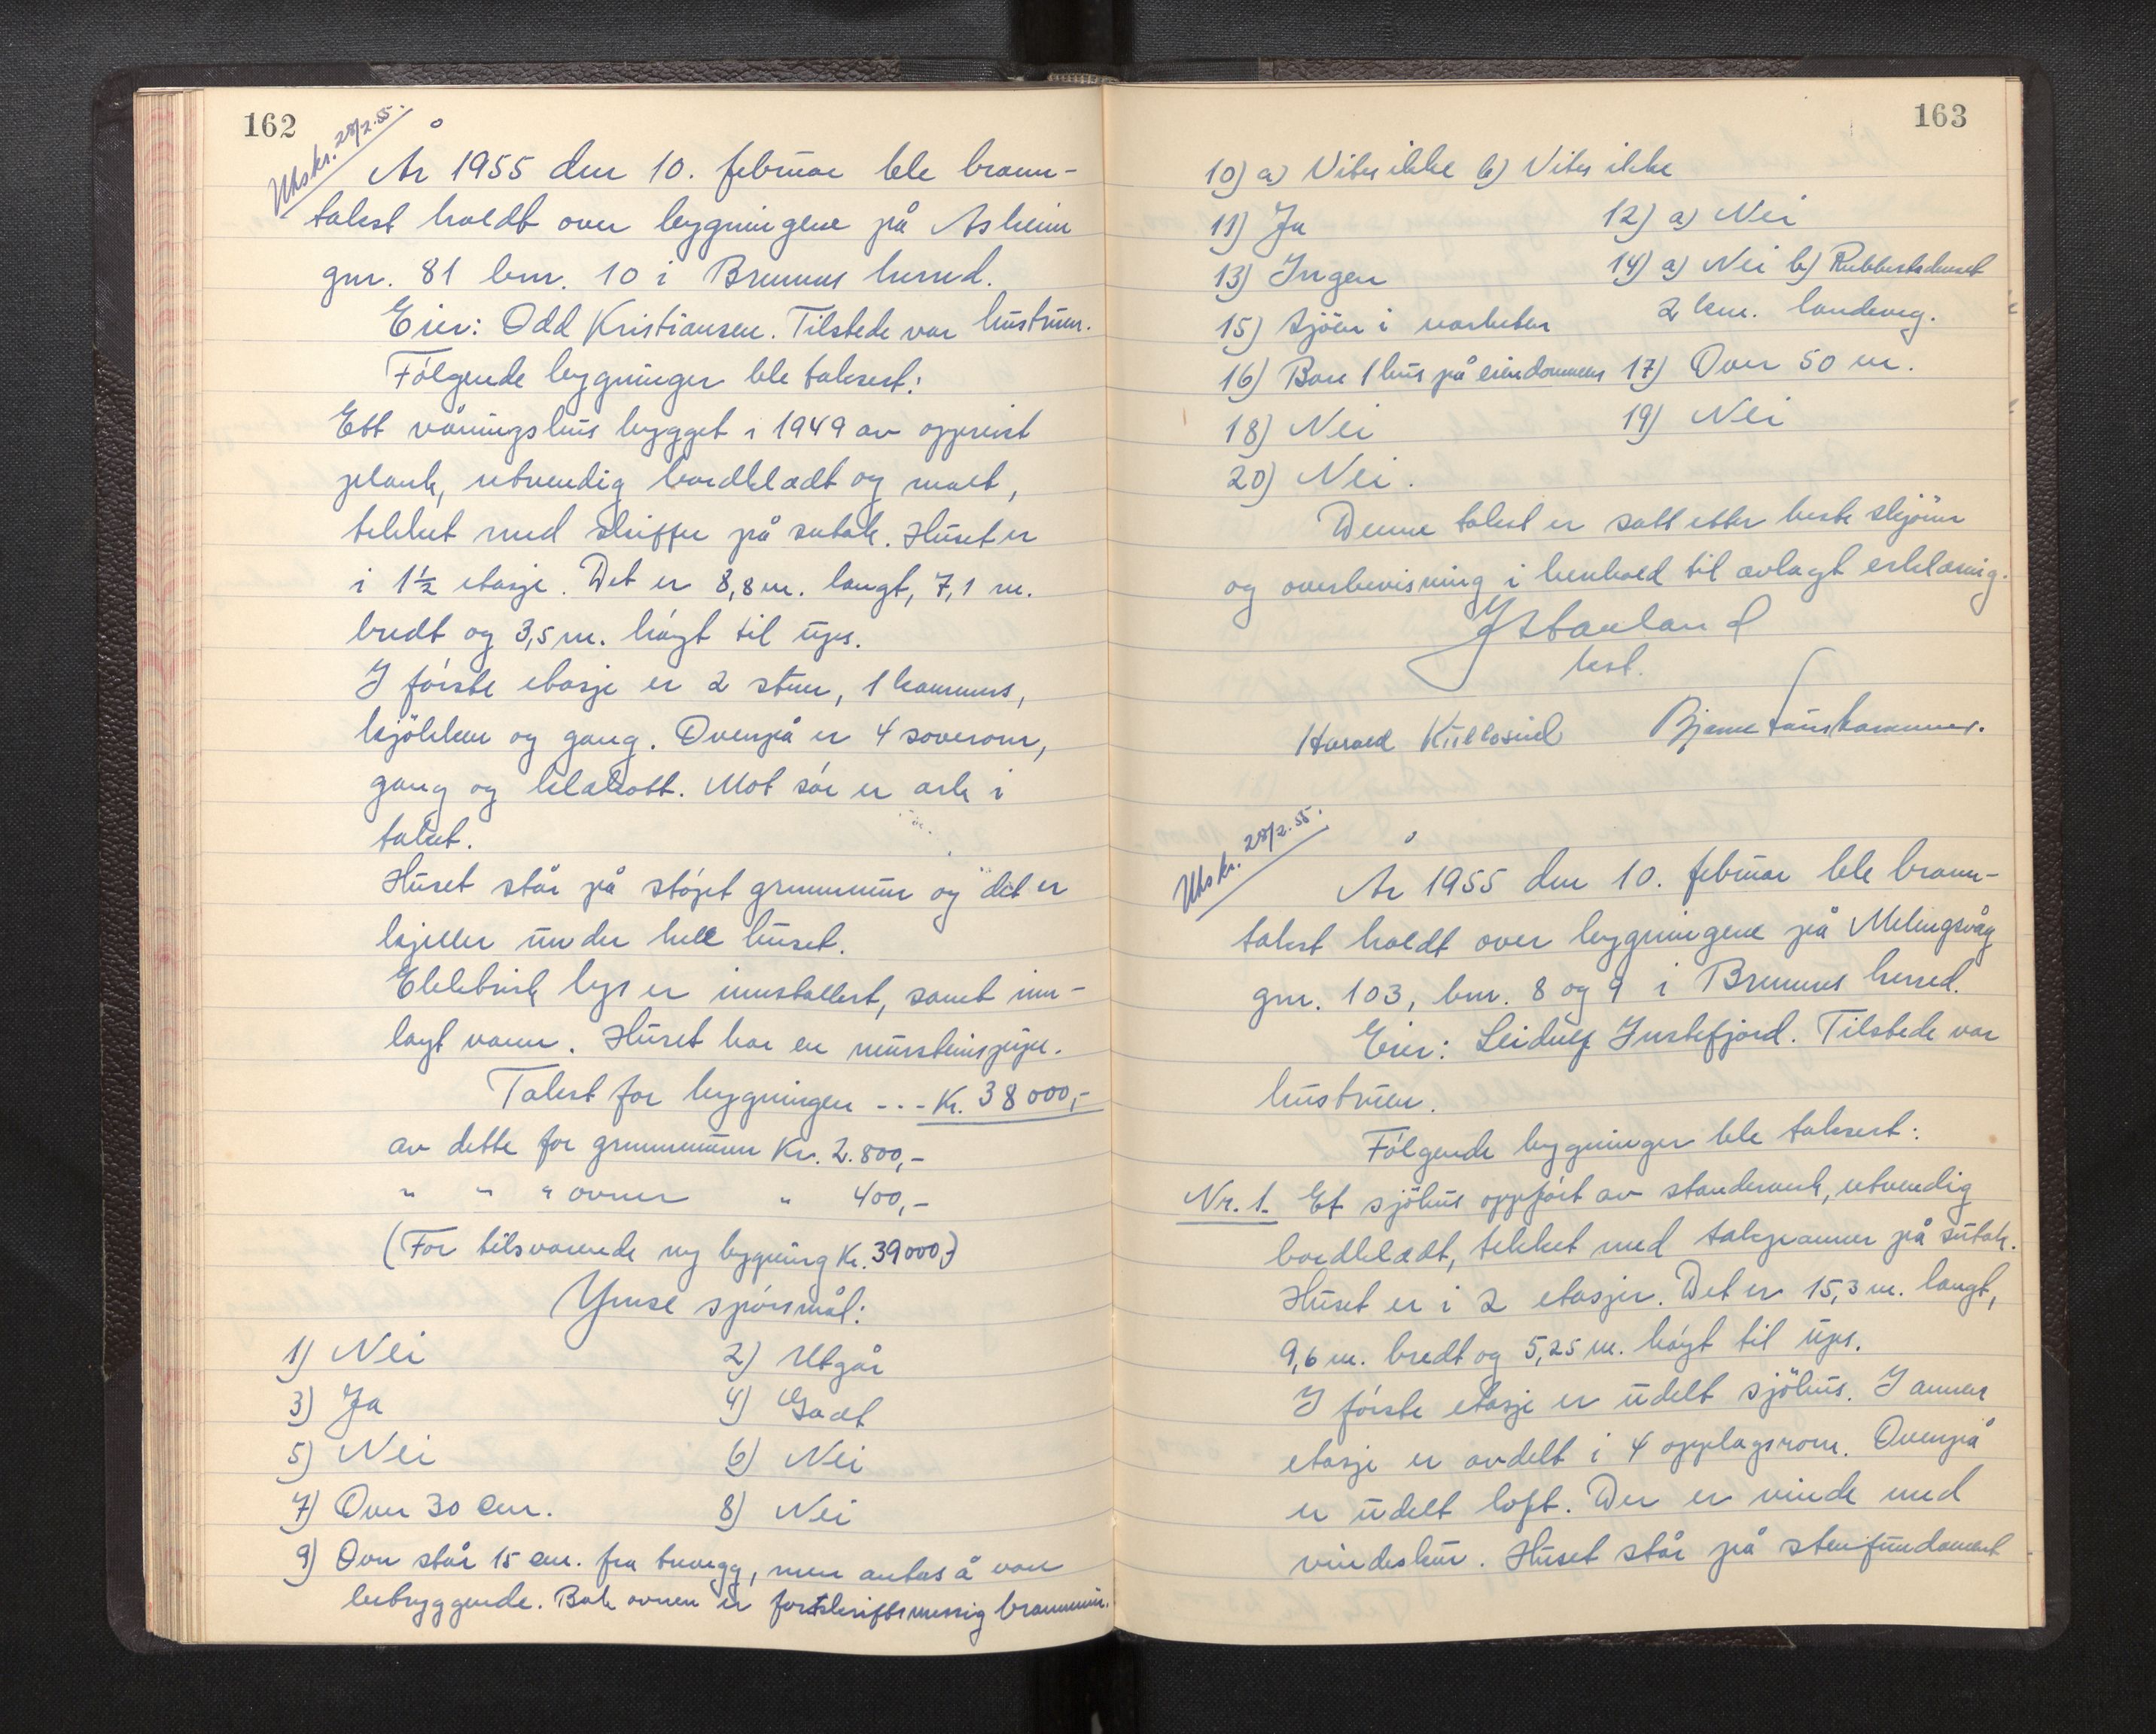 162
Utskr. 28/2.55.
År 1955 den 10. februar ble brann-
takst holdt over bygningene på Asheim
gnr. 81 bnr. 10 i Bremnes herred.
Eier: Odd Kristiansen. Tilstede var hustruen.
Følgende bygninger ble taksert:
Ett våningshus bygget i 1949 av oppreist
plank, utvendig bordkledt og malt,
tekket med skiffer på sutak. Huset er
i 1½ etasje. Det er 8,8 m. langt, 7,1 m.
bredt og 3,5 m. høgt til ups.
I første etasje er 2 stuer, 1 kammers,
kjøkken og gang. Ovenpå er 4 soverom,
gang og klekott. Mot sør er ark i
taket.
Huset står på støpt grunnmur og det er
kjeller under hele huset.
Elektrisk lys er innstallert, samt inn-
lagt vann. Huset har en mursteinspipe.
Takst for bygningen --- Kr. 38000,-
av dette for grunnmuren Kr. 2.800,-
" " " ovner " 400,-
(For tilsvarende ny bygning Kr. 39000,-)
Ymse spørsmål:
1) Nei 2) Utgår
3) Ja 4) Godt
5) Nei 6) Nei
7) Over 30 cm. 8) Nei
9) Ovn står 15 cm. fra trevegg, men antas å være
betryggende. Bak ovnen er forskriftsmessig brannmur.
163
10) a) Vites ikke b) Vites ikke
11) Ja 12) a) Nei
13) Ingen 14) a) Nei b) Rubbestadneset
2 km. landeveg.
15) Sjøen i nærheten
16) Bare 1 hus på eiendommen 17) Over 50 m.
18) Nei 19) Nei
20) Nei.
Denne takst er satt etter beste skjønn
og overbevisning i henhold til avlagt erklæring.
Stauland
lest.
Harald Bjarne
Utskr. 28/2.55.
År 1955 den 10. februar ble brann-
takst holdt over bygningene på Melingsvåg
gnr. 103, bnr. 8 og 9 i Bremnes herred.
Eier: Leidulf Innstefjord. Tilstede var
hustruen.
Følgende bygninger ble taksert:
Nr. 1. Et sjøhus oppført av standerverk, utvendig
bordkledt, tekket med takpanner på sutak.
Huset er i 2 etasjer. Det er 15,3 m. langt,
9,6 m. bredt og 5,25 m. høgt til ups.
I første etasje er udelt sjøhus. I annen
etasje er avdelt i 4 opplagsrom. Ovenpå
er udelt loft. Der er vinde med
vindeskur. Huset står på stenfundament